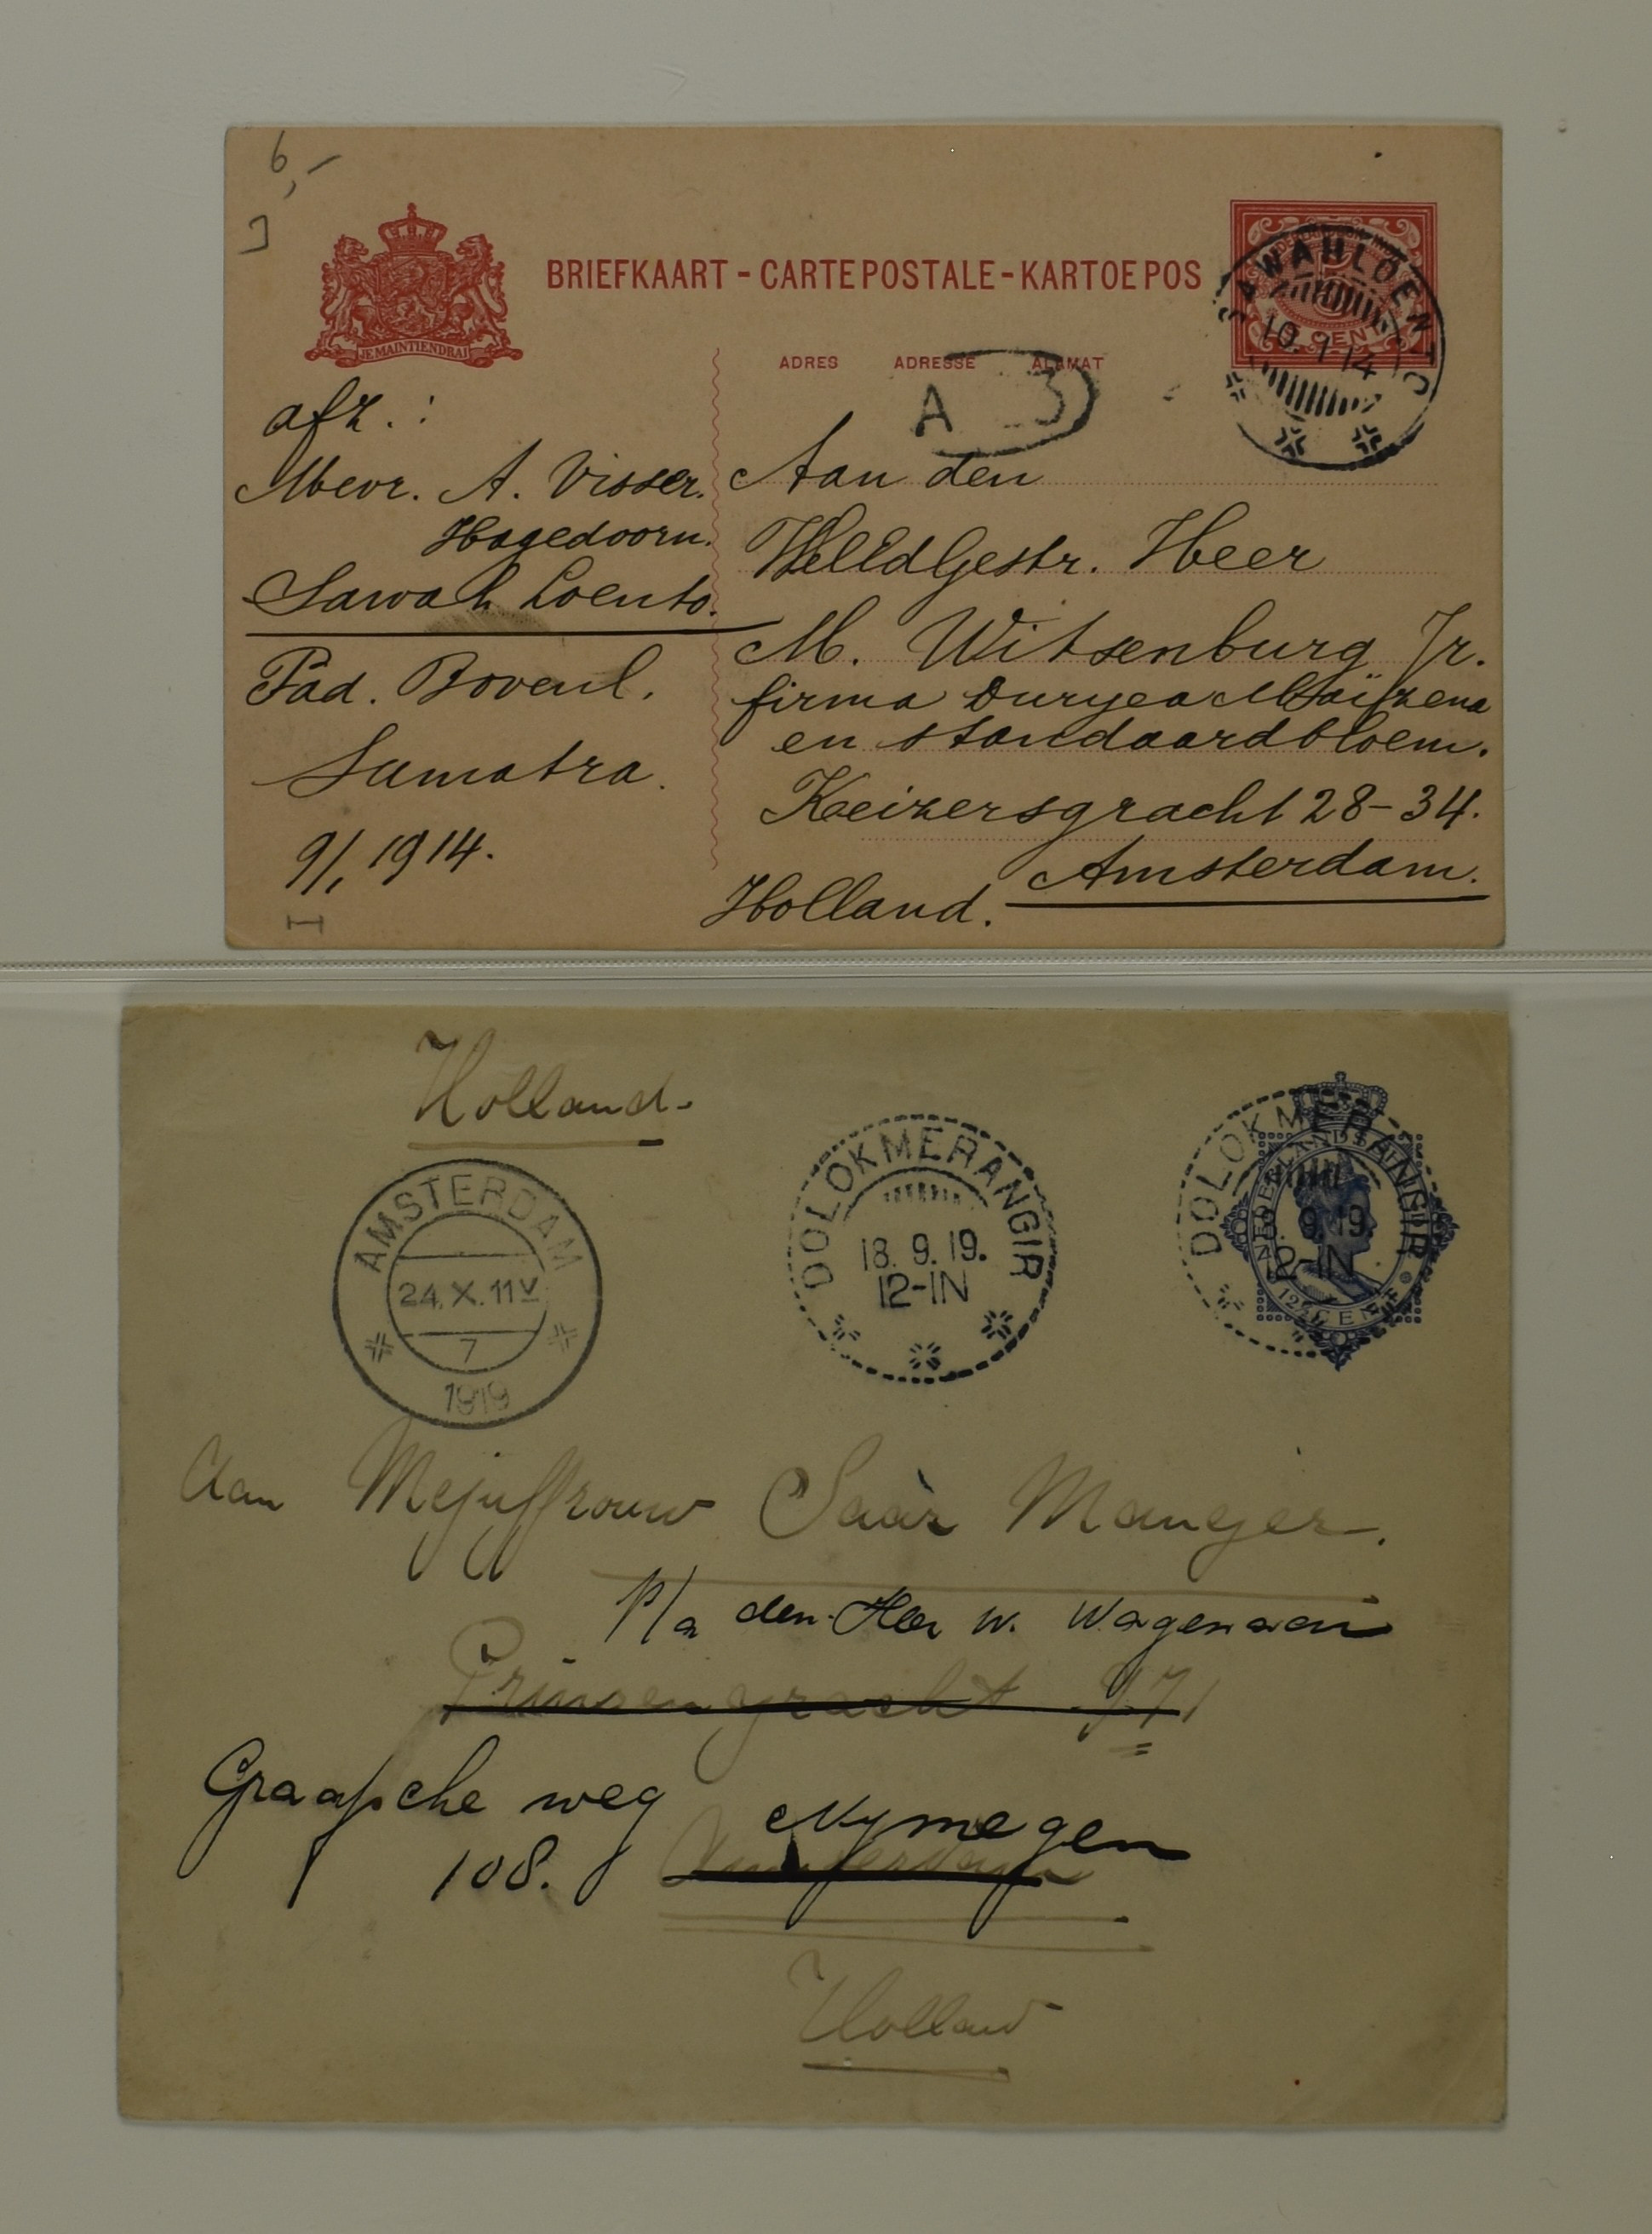 6,-
JE MAINTIENDRAI
BRIEFKAART - CARTE POSTALE - KARTOEPOS
CENT
SAWAHLOENTO
10.1.14
ADRES ADRESSE ALAMAT
A 3
afz.:
Mevr. A. Visser.
Hagedoorn.
Sawah Loento.
Pad. Bovenl.
Sumatra.
9/1 1914.
Aan den
WelEdGestr. Heer
M. Witsenburg Jr.
firma Duryea Maïzena
en standaardbloem.
Keizersgracht 28-34.
Amsterdam.
Holland.
Holland.
AMSTERDAM
24.X.11V
7
1919
DOLOKMERANGIR
18.9.19.
12-1N
DOLOKMERANGIR
18.9.19.
12-1N
12½ CENT
Aan Mejuffrouw Saar Manger.
P/a den Heer W. Wagenaar
Prinsengracht 971
Graafsche weg Nymegen
108. Amsterdam
Holland